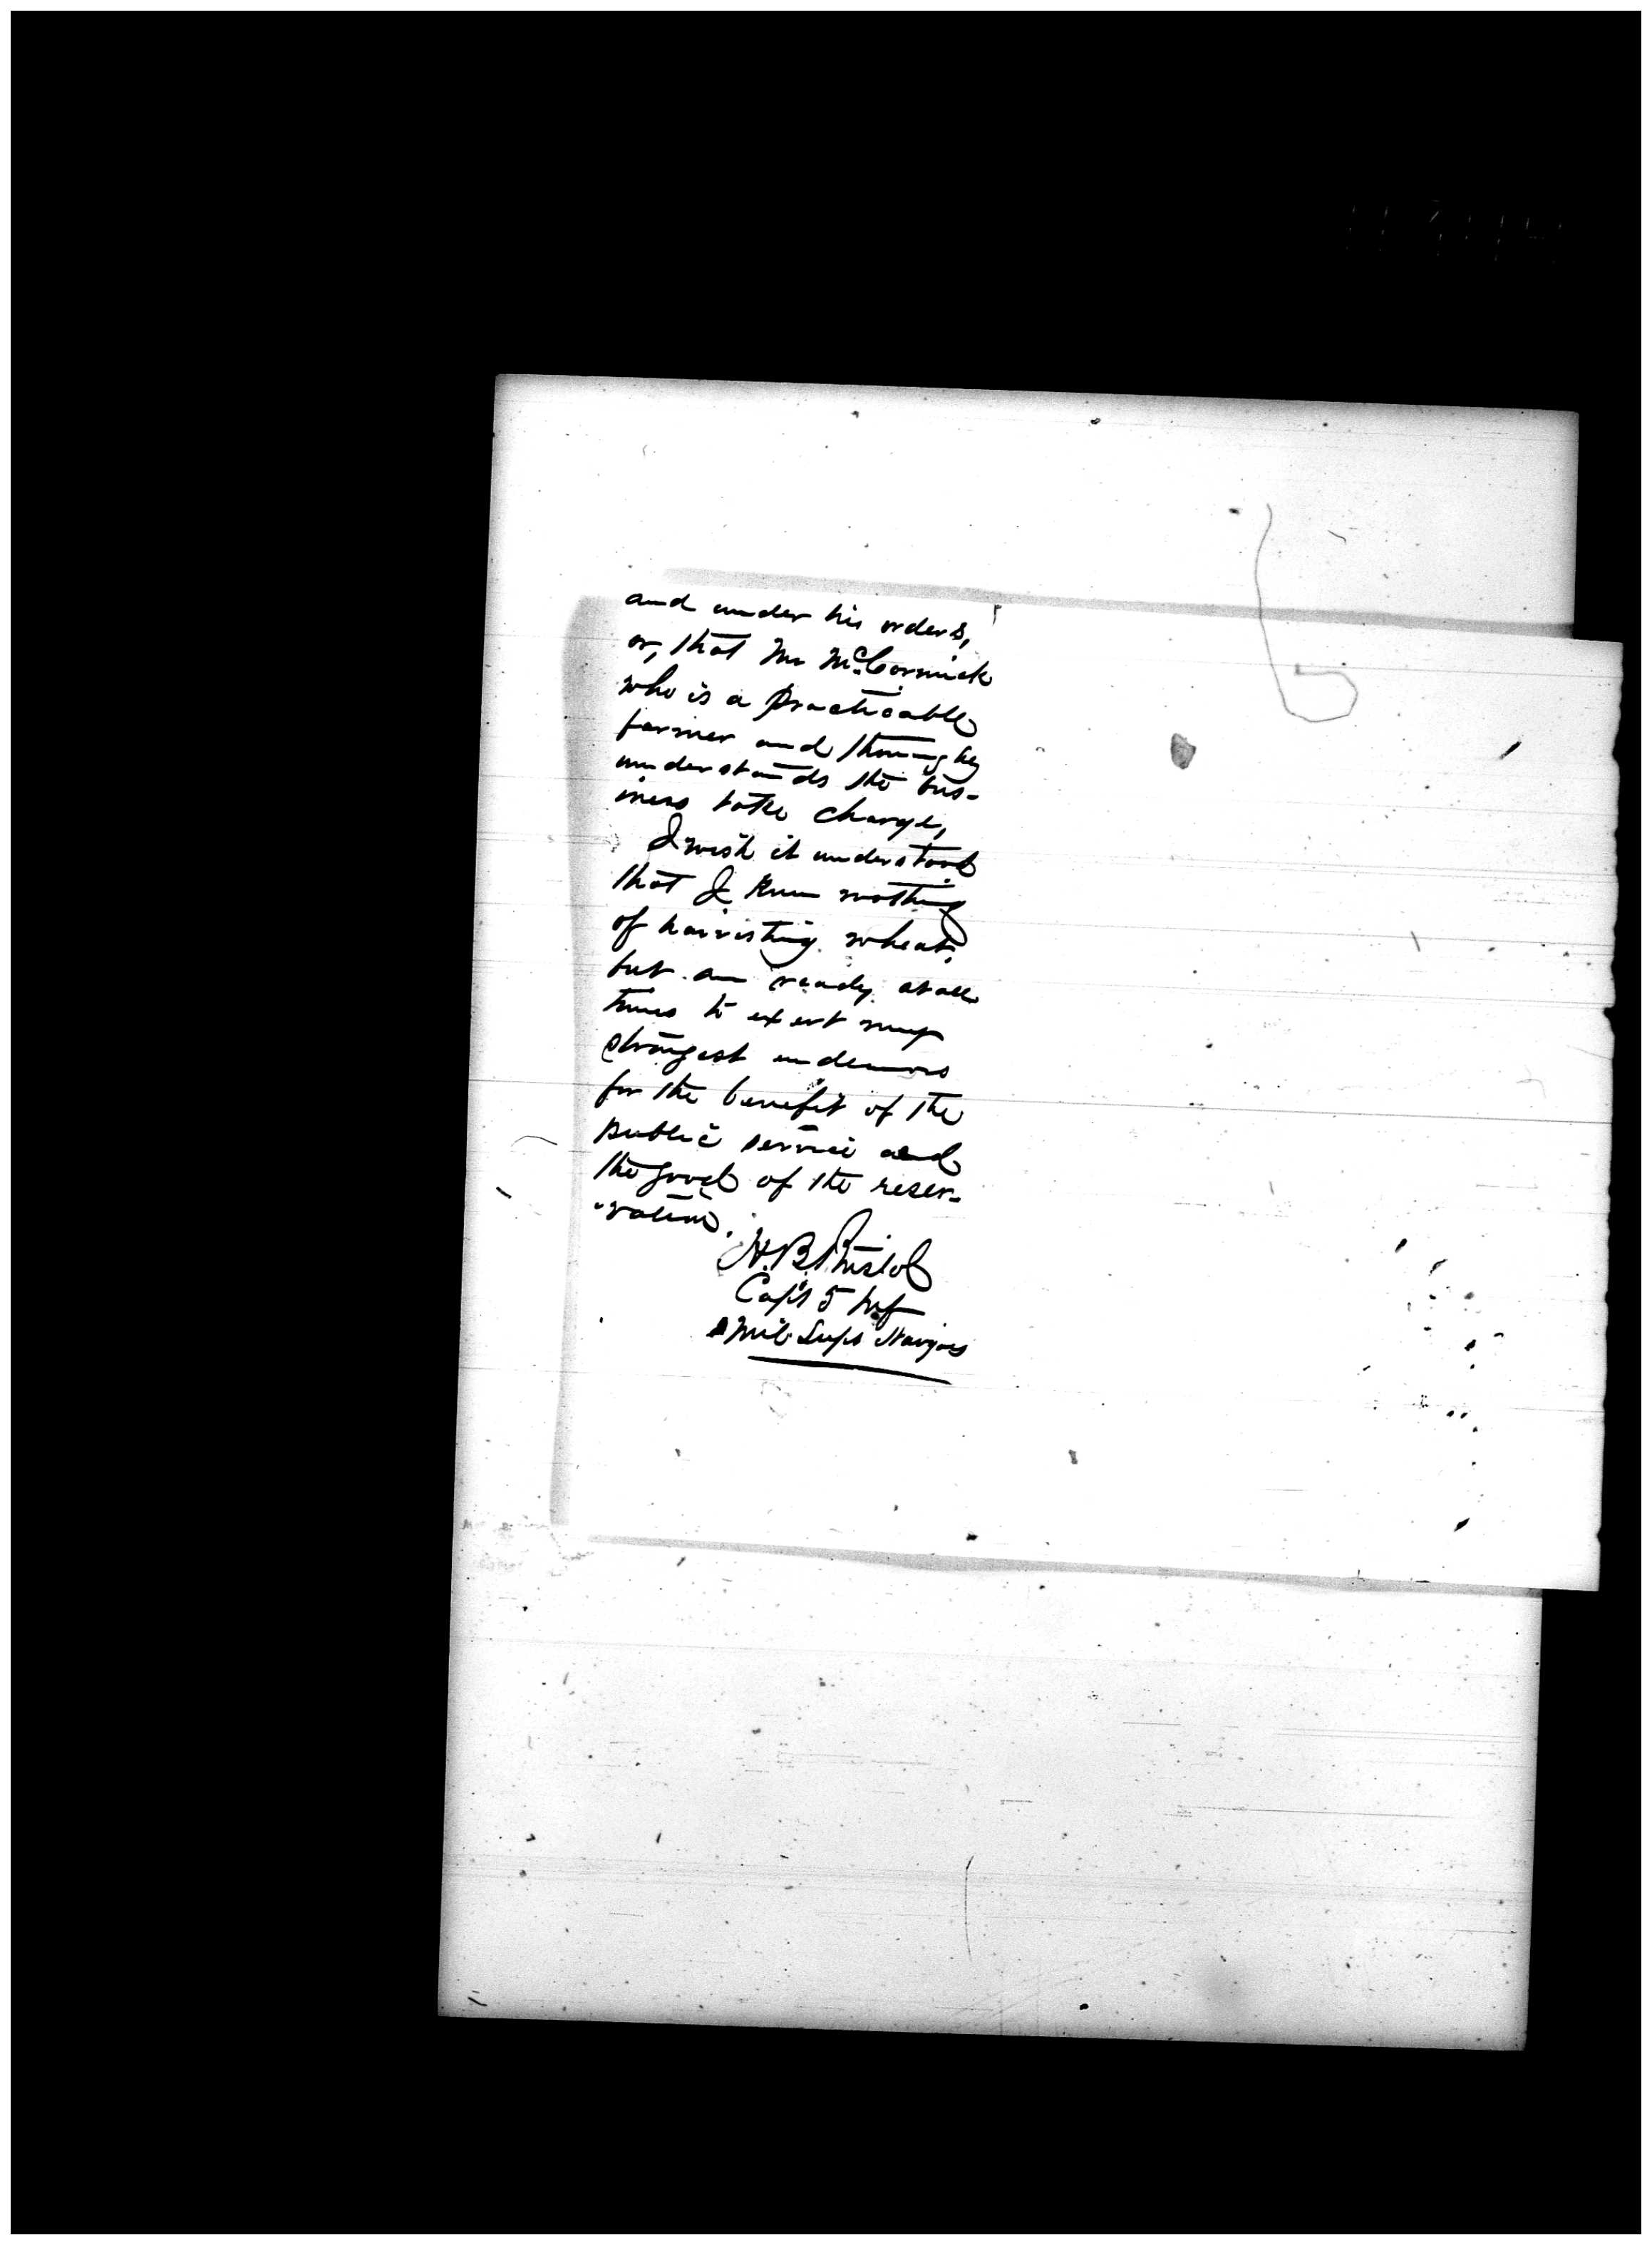 and under his orders,
or, that Mr McCormick
who is a practicable
farmer and thoroughly
understands the bus-
iness take charge,
I wish it understood
that I know nothing
of harvesting wheat,
but am ready at all
times to exert my
strongest endeavors
for the benefit of the
public service and
the good of the reser-
vation.
H. B. Bristol
Capt 5 Inf
Mil Supt Navajoes